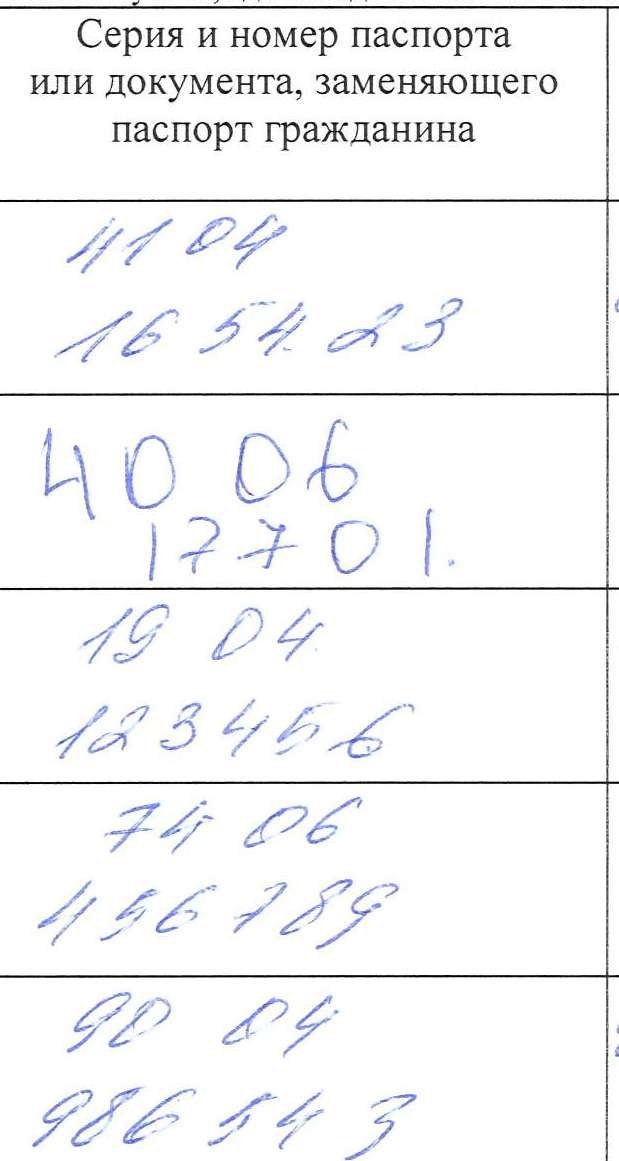 Серия и номер паспорта
или документа, заменяющего
паспорт гражданина
41 04
16 54 23
40 06
17701.
19 04
123456
74 06
456789
90 04
986 543